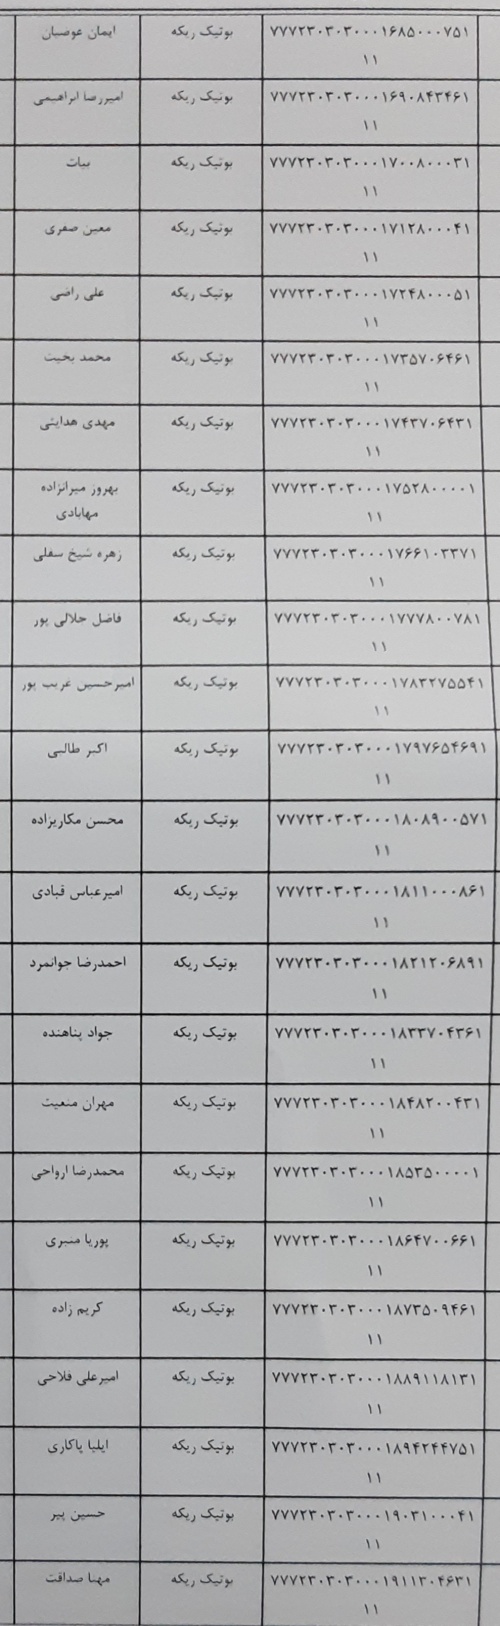 ۷۷۷۲۳۰۳۰۳۰۰۰۱۶۸۵۰۰۰۷۵۱ بوتیک ریکه ایمان عوصیان
۱۱
۷۷۷۲۳۰۳۰۳۰۰۰۱۶۹۰۸۴۳۴۶۱ بوتیک ریکه امیررضا ابراهیمی
۱۱
۷۷۷۲۳۰۳۰۳۰۰۰۱۷۰۰۸۰۰۰۳۱ بوتیک ریکه بیات
۱۱
۷۷۷۲۳۰۳۰۳۰۰۰۱۷۱۲۸۰۰۰۴۱ بوتیک ریکه معین صفری
۱۱
۷۷۷۲۳۰۳۰۳۰۰۰۱۷۲۴۸۰۰۰۵۱ بوتیک ریکه علی راضی
۱۱
۷۷۷۲۳۰۳۰۳۰۰۰۱۷۳۵۷۰۶۴۶۱ بوتیک ریکه محمد بخیت
۱۱
۷۷۷۲۳۰۳۰۳۰۰۰۱۷۴۳۷۰۶۴۳۱ بوتیک ریکه مهدی هدایتی
۱۱
۷۷۷۲۳۰۳۰۳۰۰۰۱۷۵۲۸۰۰۰۰۱ بوتیک ریکه بهروز میرانزاده
۱۱ مهابادی
۷۷۷۲۳۰۳۰۳۰۰۰۱۷۶۶۱۰۳۳۷۱ بوتیک ریکه زهره شیخ سفلی
۱۱
۷۷۷۲۳۰۳۰۳۰۰۰۱۷۷۷۸۰۰۷۸۱ بوتیک ریکه فاضل جلالی پور
۱۱
۷۷۷۲۳۰۳۰۳۰۰۰۱۷۸۳۲۷۵۵۴۱ بوتیک ریکه امیرحسین غریب پور
۱۱
۷۷۷۲۳۰۳۰۳۰۰۰۱۷۹۷۶۵۴۶۹۱ بوتیک ریکه اکبر طالبی
۱۱
۷۷۷۲۳۰۳۰۳۰۰۰۱۸۰۸۹۰۰۵۷۱ بوتیک ریکه محسن مکاریزاده
۱۱
۷۷۷۲۳۰۳۰۳۰۰۰۱۸۱۱۰۰۰۸۶۱ بوتیک ریکه امیرعباس قبادی
۱۱
۷۷۷۲۳۰۳۰۳۰۰۰۱۸۲۱۲۰۶۸۹۱ بوتیک ریکه احمدرضا جوانمرد
۱۱
۷۷۷۲۳۰۳۰۳۰۰۰۱۸۳۳۷۰۴۳۶۱ بوتیک ریکه جواد پناهنده
۱۱
۷۷۷۲۳۰۳۰۳۰۰۰۱۸۴۸۲۰۰۴۳۱ بوتیک ریکه مهران منعیت
۱۱
۷۷۷۲۳۰۳۰۳۰۰۰۱۸۵۳۵۰۰۰۰۱ بوتیک ریکه محمدرضا ارواحی
۱۱
۷۷۷۲۳۰۳۰۳۰۰۰۱۸۶۴۷۰۰۶۶۱ بوتیک ریکه پوریا منبری
۱۱
۷۷۷۲۳۰۳۰۳۰۰۰۱۸۷۳۵۰۹۴۶۱ بوتیک ریکه کریم زاده
۱۱
۷۷۷۲۳۰۳۰۳۰۰۰۱۸۸۹۱۱۸۱۳۱ بوتیک ریکه امیرعلی فلاحی
۱۱
۷۷۷۲۳۰۳۰۳۰۰۰۱۸۹۴۲۴۴۷۵۱ بوتیک ریکه ایلیا پاکاری
۱۱
۷۷۷۲۳۰۳۰۳۰۰۰۱۹۰۳۱۰۰۰۴۱ بوتیک ریکه حسین پیر
۱۱
۷۷۷۲۳۰۳۰۳۰۰۰۱۹۱۱۳۰۴۶۳۱ بوتیک ریکه مهنا صداقت
۱۱